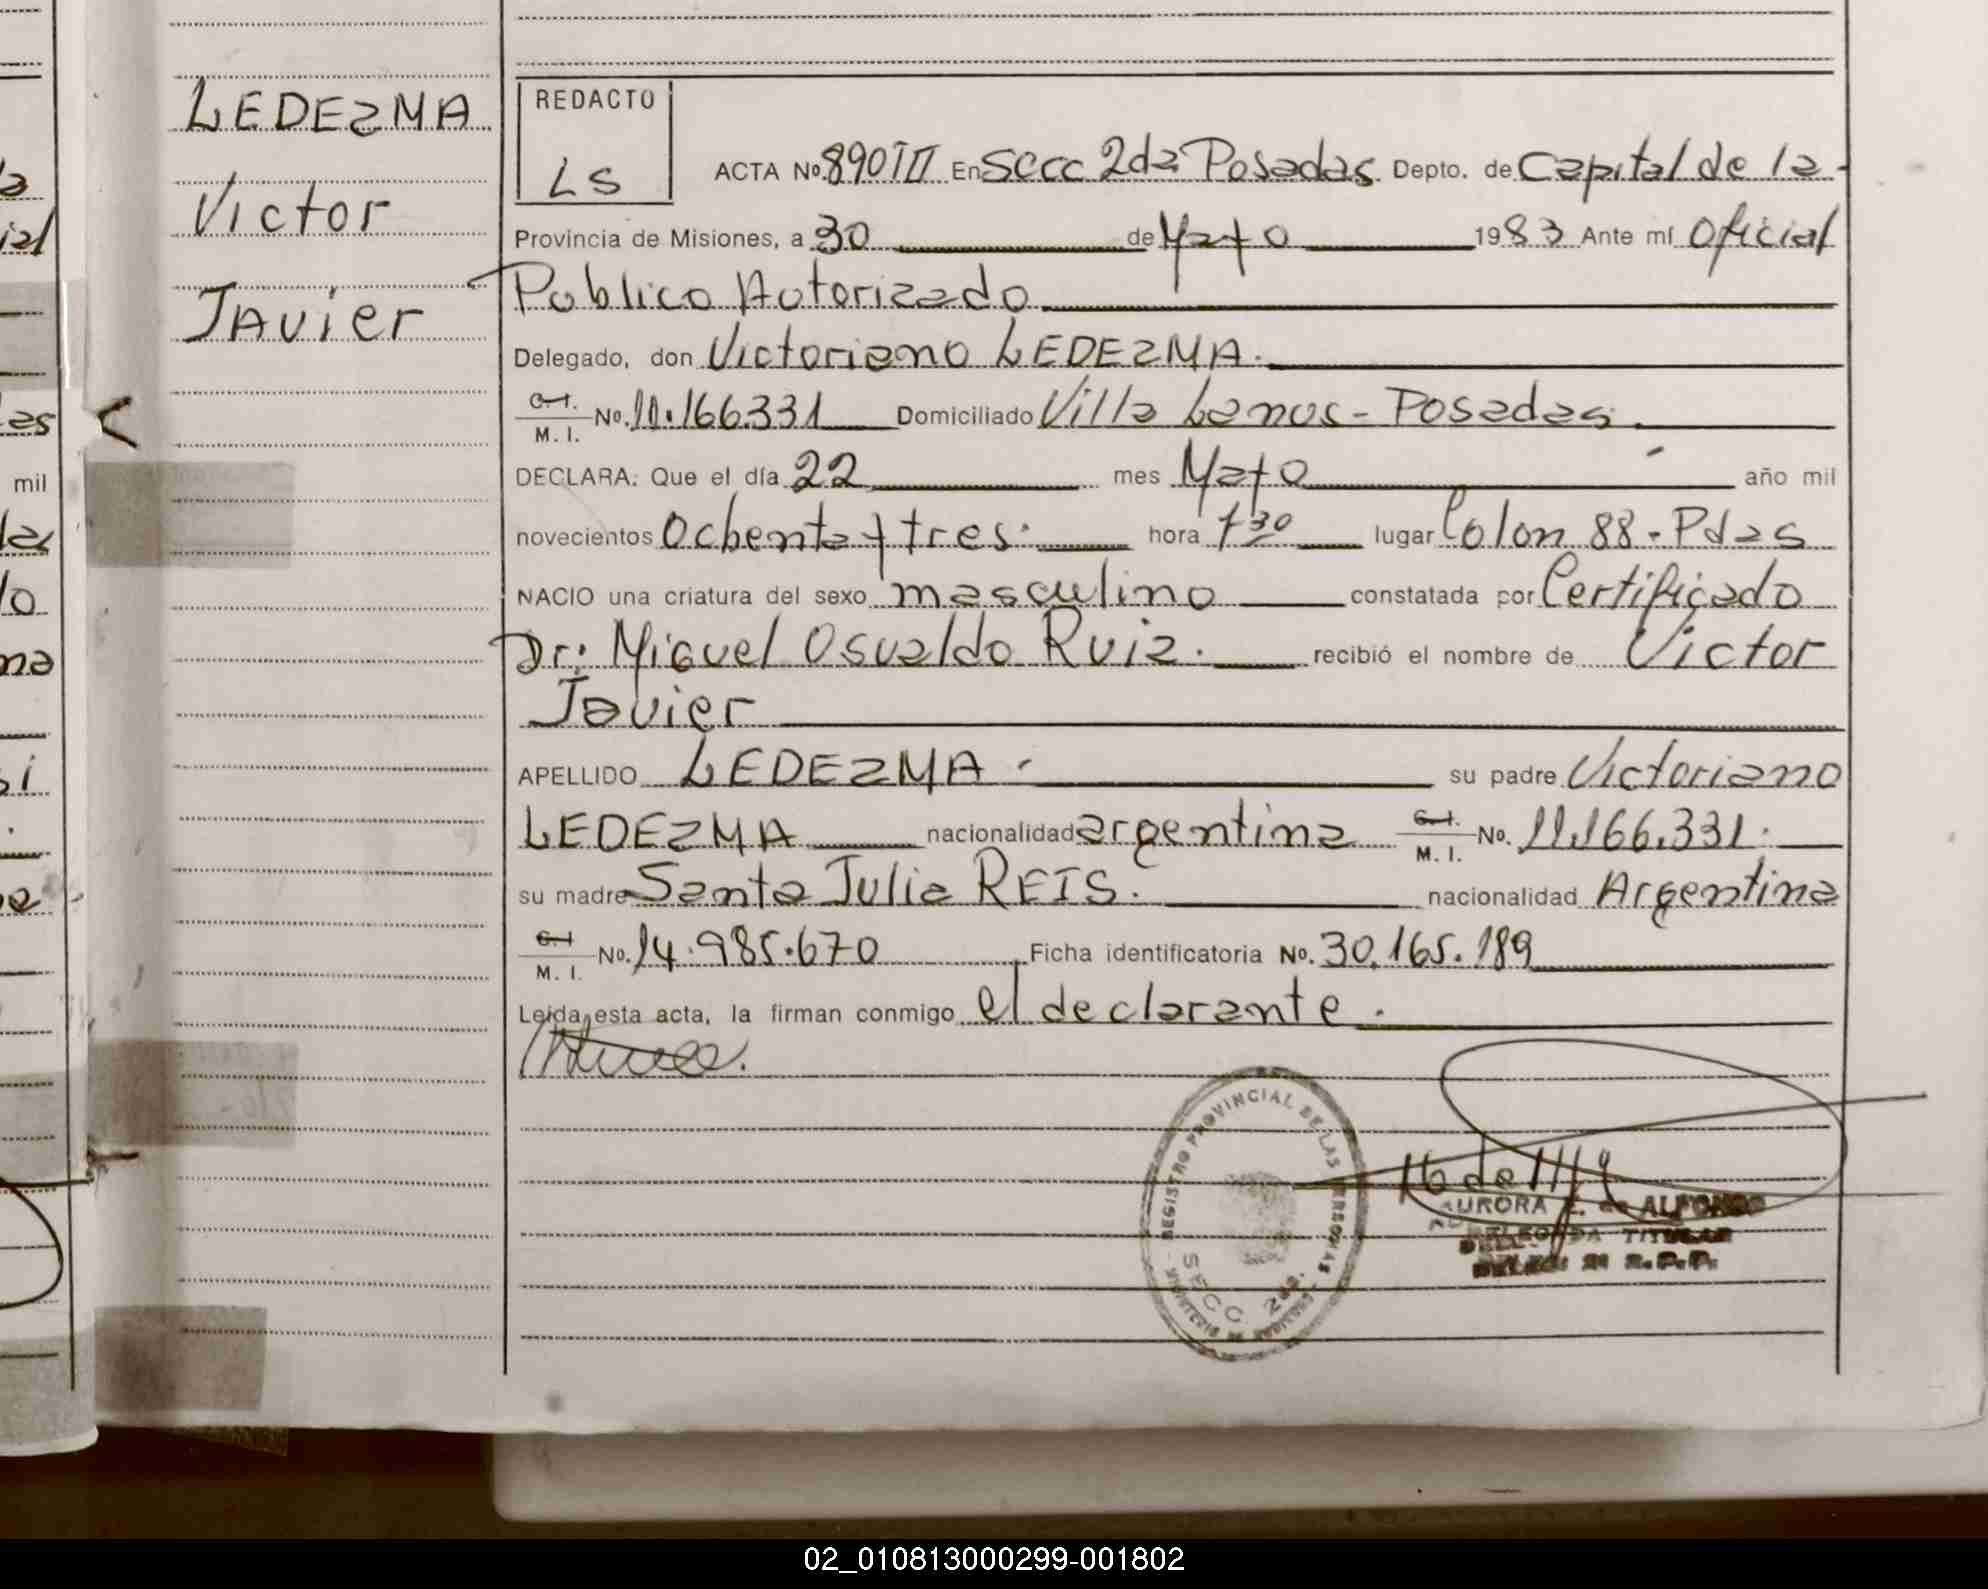 LEDEZMA
Victor
Javier
REDACTO
LS
ACTA No. 890 TII En Secc 2da Posadas Depto. de Capital de la
Provincia de Misiones, a 30 de Mayo 1983 Ante mí Oficial
Publico Autorizado
Delegado, don Victoriano LEDEZMA.
C.I.
M. I. No. 11.166.331 Domiciliado Villa Lanus - Posadas
DECLARA: Que el día 22 mes Mayo año mil
novecientos Ochenta y tres. hora 7 30 lugar Colon 88 - Pdas
NACIO una criatura del sexo masculino constatada por Certificado
Dr: Miguel Osvaldo Ruiz. recibió el nombre de Victor
Javier
APELLIDO LEDEZMA su padre Victoriano
LEDEZMA nacionalidad argentina C.I.
M. I. No. 11.166.331.
su madre Santa Julia REIS. nacionalidad Argentina
C.I
M. I. No. 14.985.670 Ficha identificatoria No. 30.165.189
Leída esta acta, la firman conmigo el declarante.
REGISTRO PROVINCIAL DE LAS PERSONAS
SECC. 2da.
16 de
AURORA E. de ALFONSO
TITULAR
mil
02_010813000299-001802